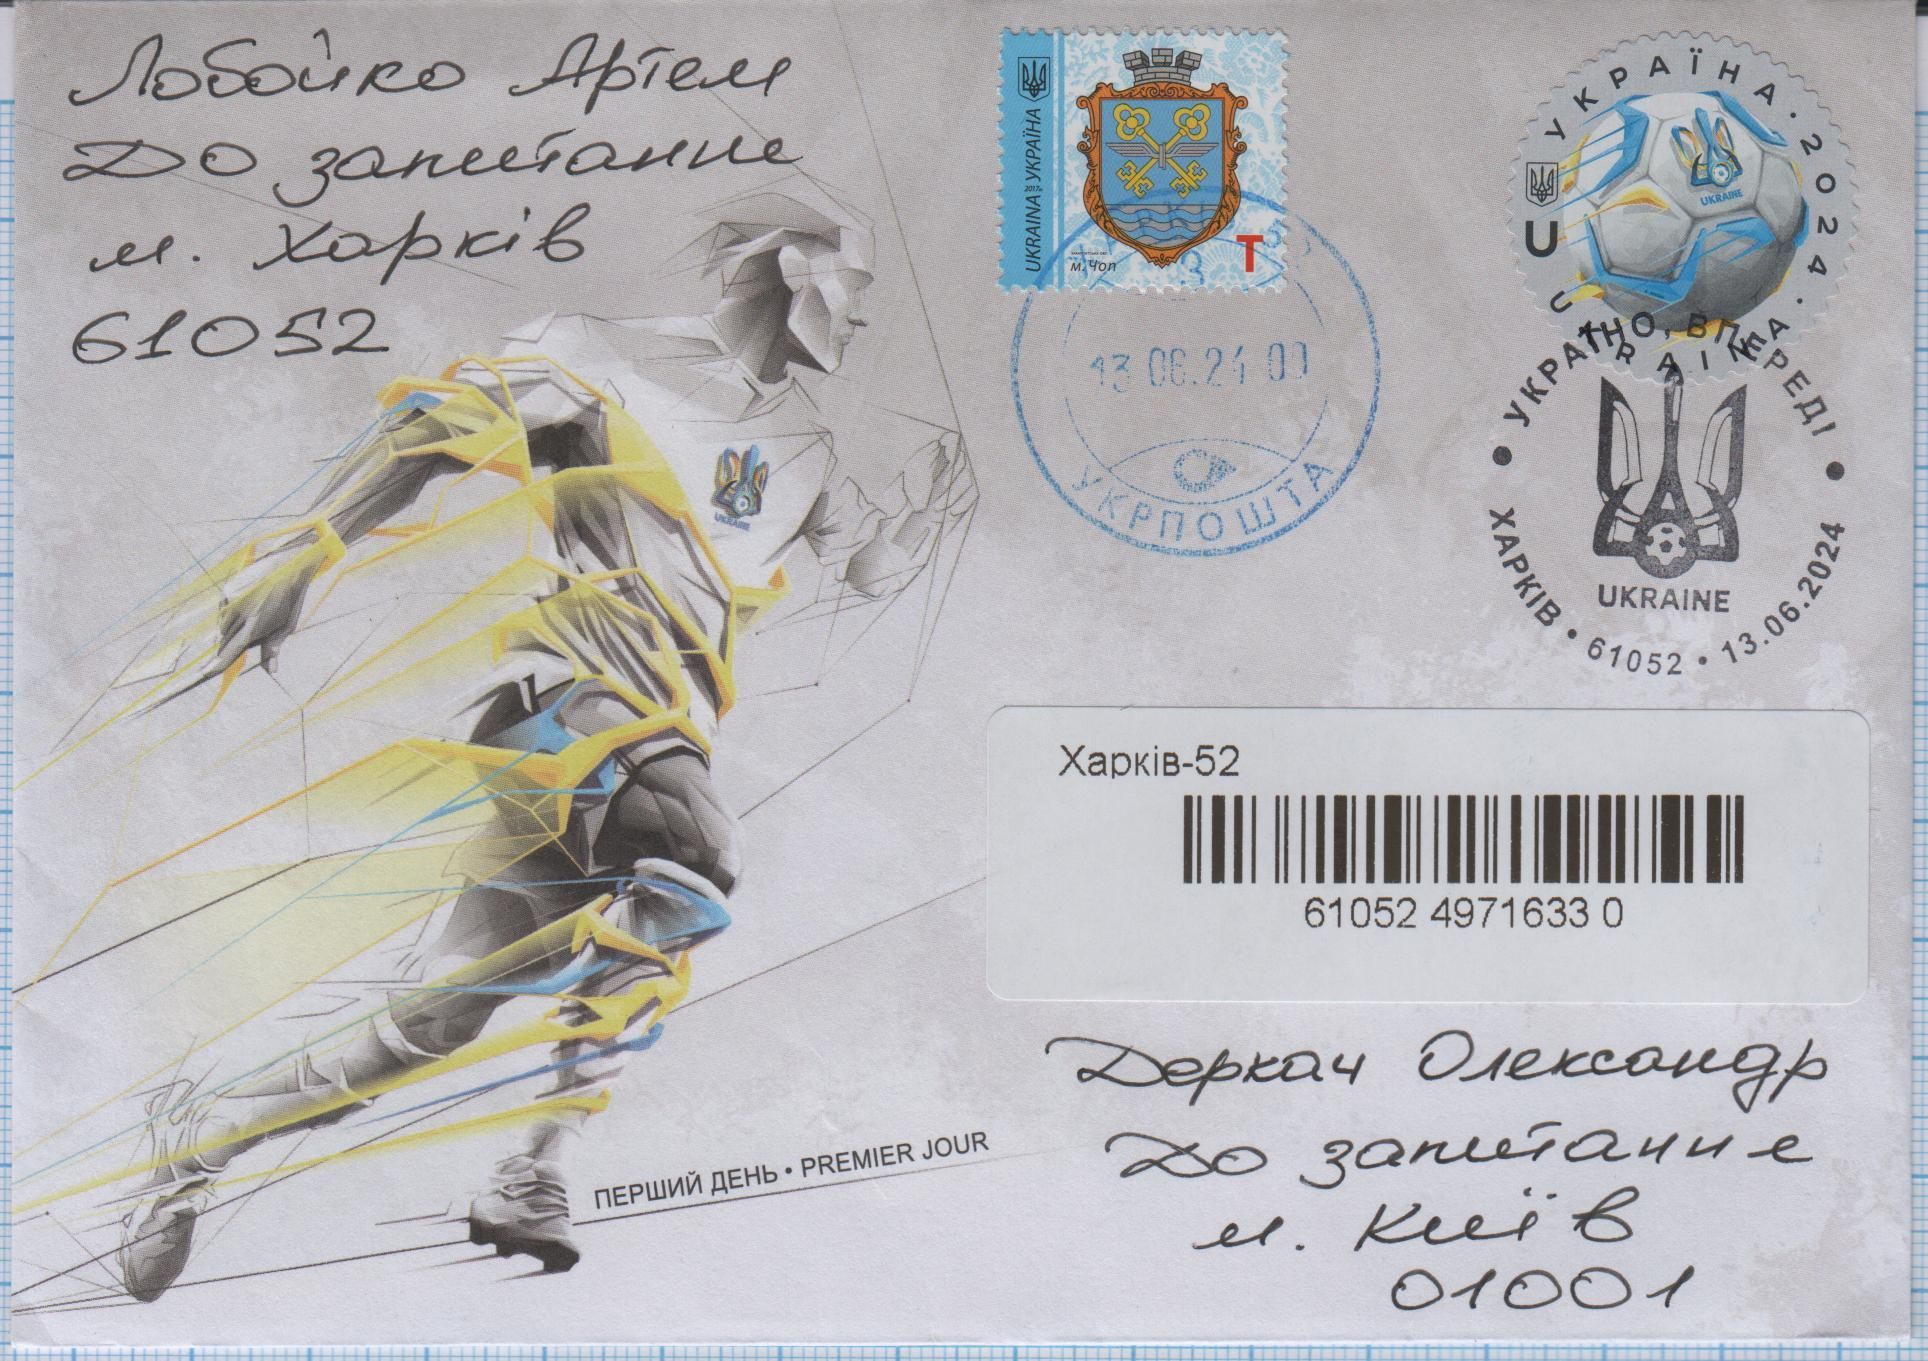 Лобойко Артем
До запитание
м. Харків
61052
UKRAINA УКРАЇНА
2017
м. Чоп
T
13 06.24 00
УКРПОШТА
УКРАЇНА · 2024 · UKRAINA
U
UKRAINE
УКРАЇНО, ВПЕРЕДІ
UKRAINE
ХАРКІВ • 61052 • 13.06.2024
UKRAINE
Харків-52
61052 4971633 0
Деркач Олександр
До запитание
м. Київ
01001
ПЕРШИЙ ДЕНЬ • PREMIER JOUR